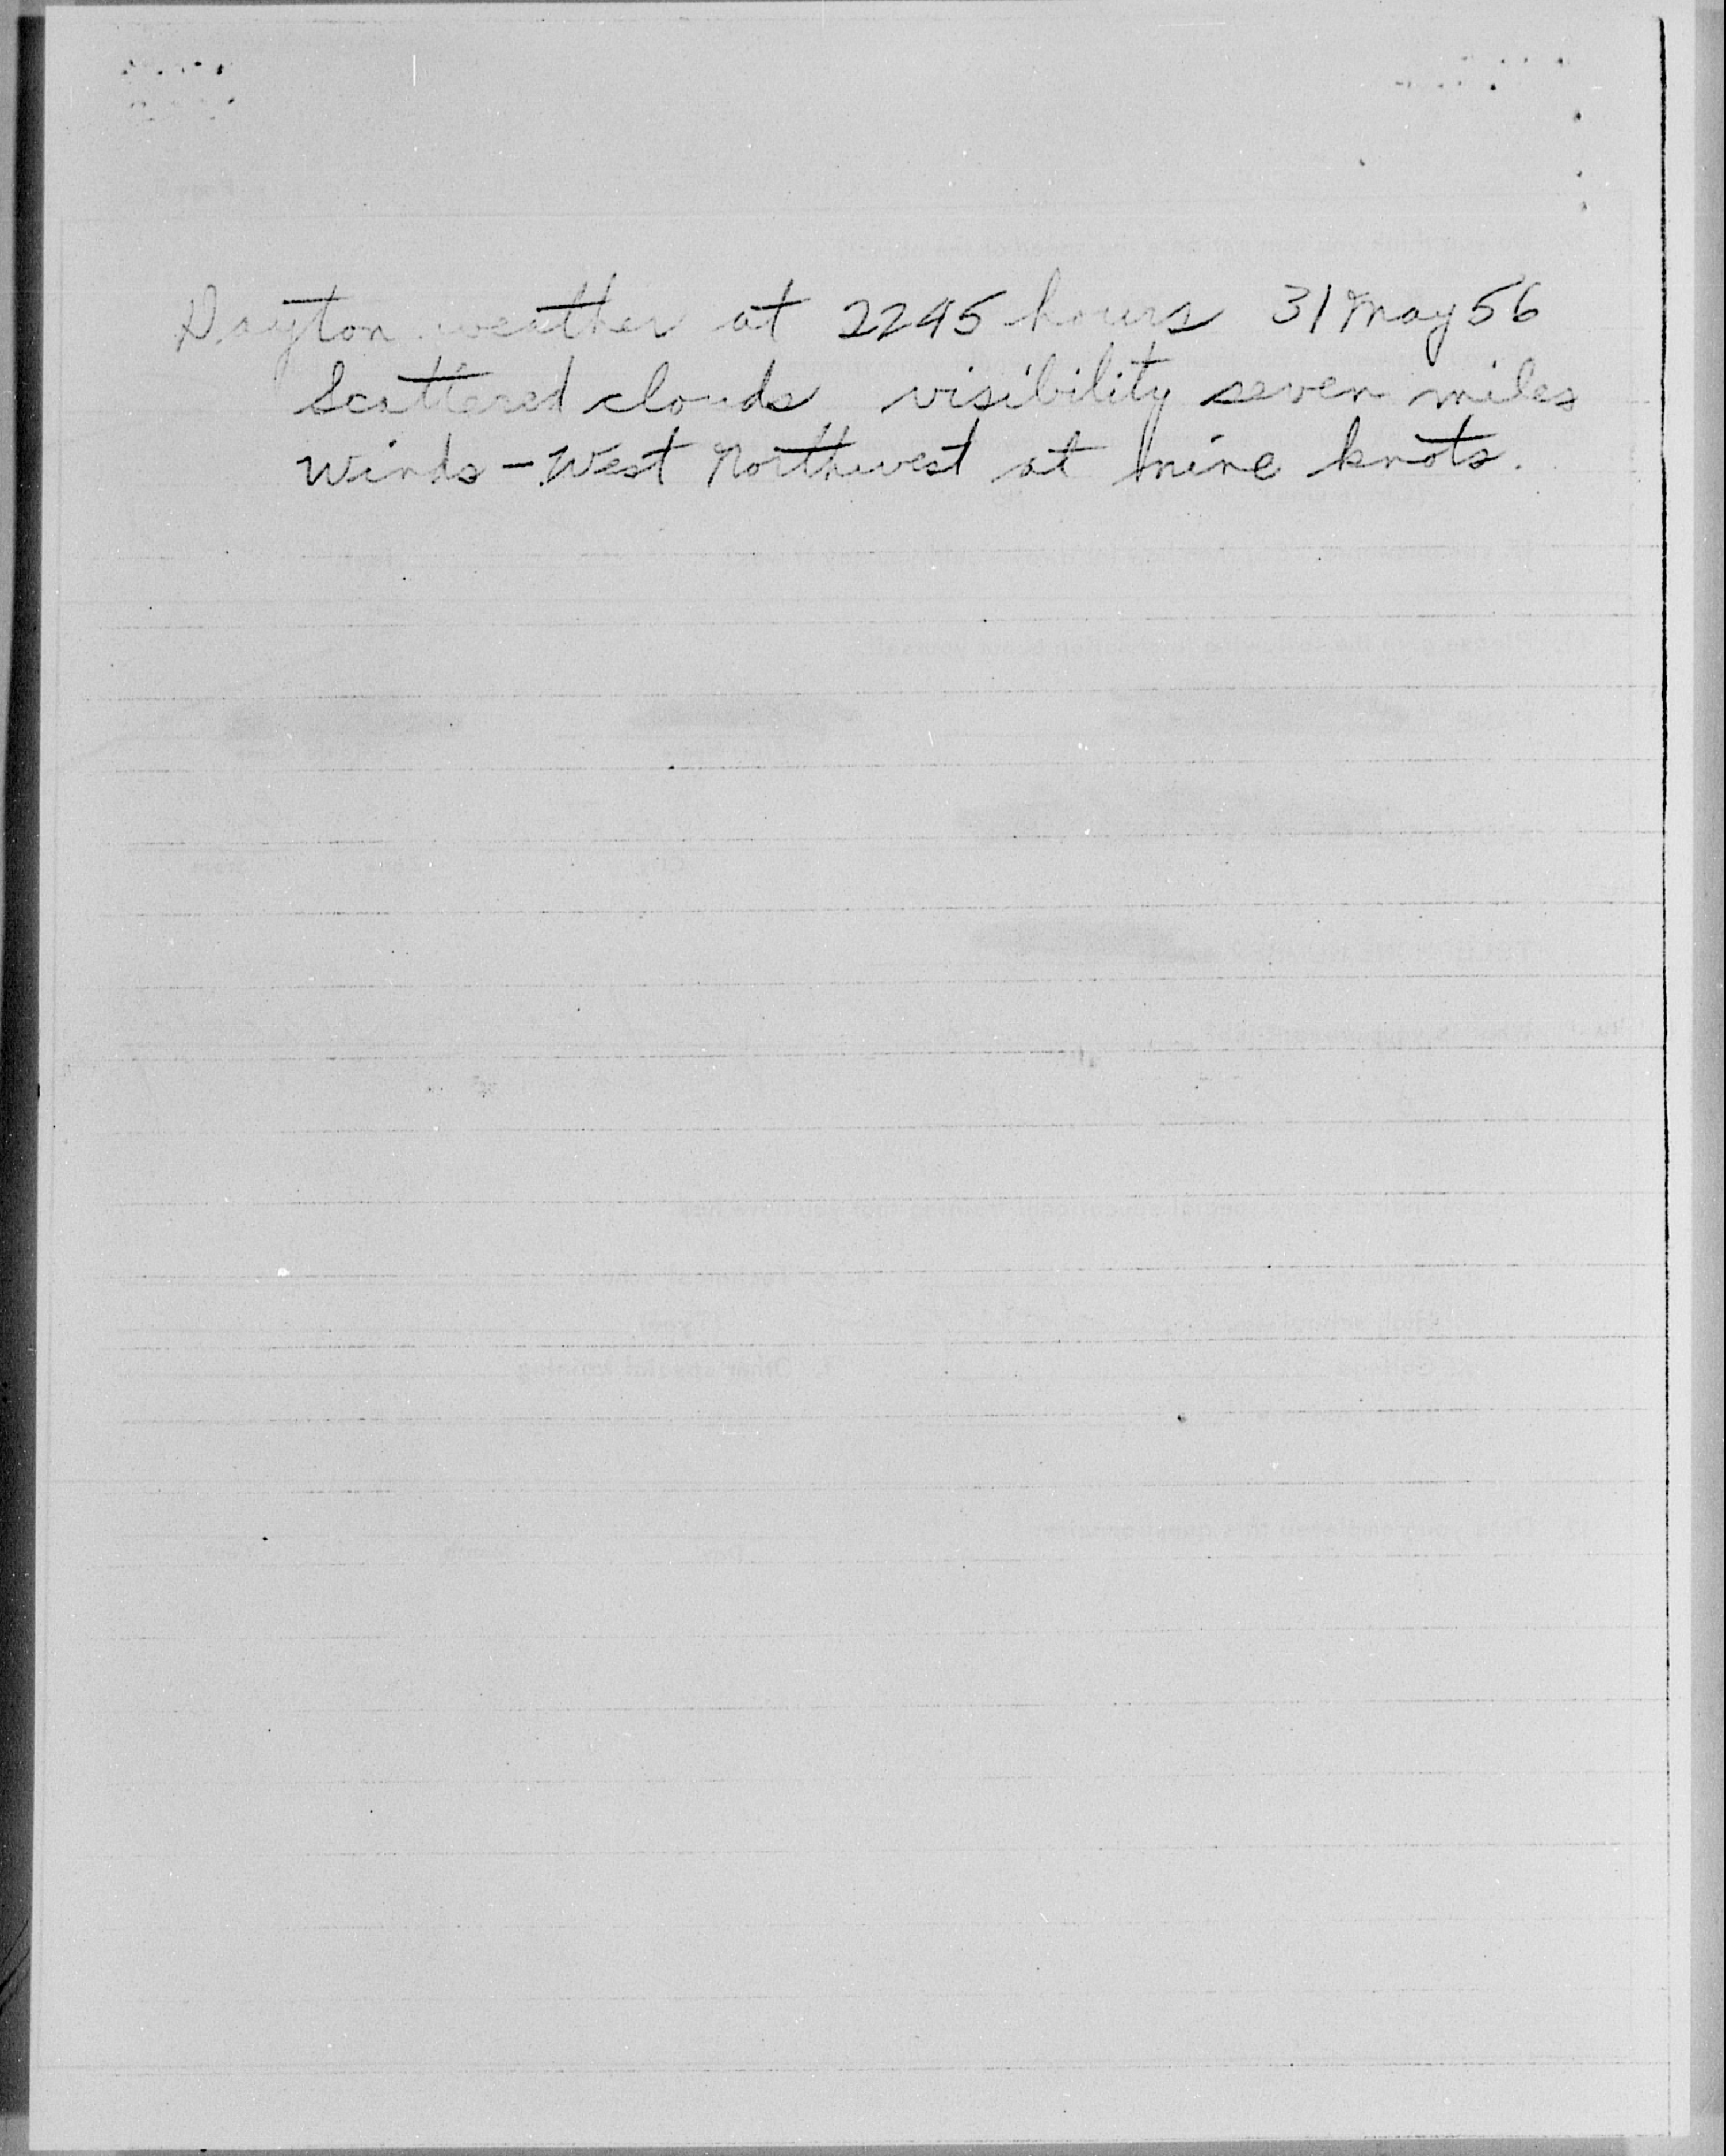 Dayton weather at 2245 hours 31 May 56
Scattered clouds visibility seven miles
Winds - West Northwest at nine knots.